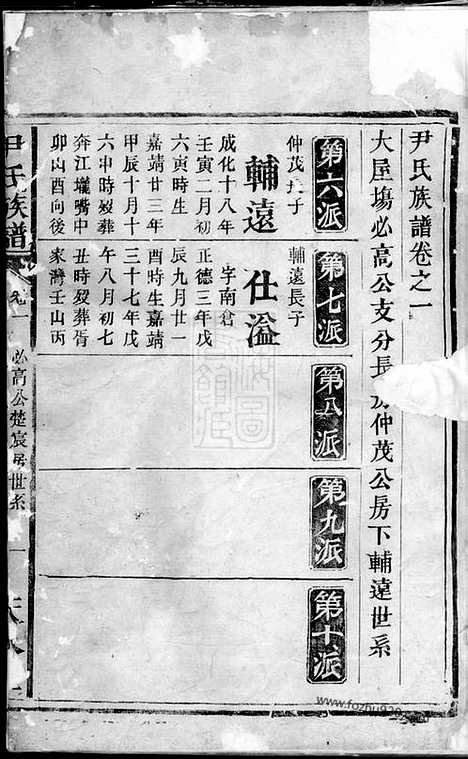 尹氏族譜卷之一
大屋塲必高公支分長房仲茂公房下輔遠世系
第六派
仲茂長子
輔遠
成化十八年
壬寅二月初
六寅時生
嘉靖廿三年
甲辰十月十
六申時歿葬
奔江壠嘴中
卯山酉向後
第七派
輔遠長子
仕溢
字南倉
正德三年戊
辰九月廿一
酉時生嘉靖
三十七年戊
午八月初七
丑時歿葬胥
家灣壬山丙
第八派
第九派
第十派
尹氏族譜
卷一
必高公楚宸房世系
一
www.fozhu920